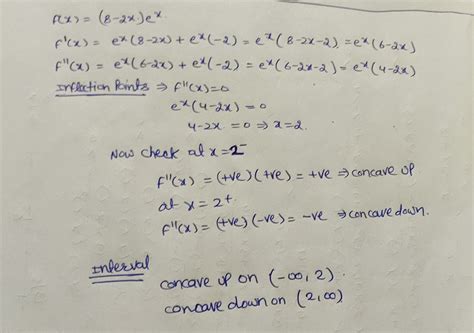 f(x) = (8-2x)e^x
f'(x) = e^x(8-2x) + e^x(-2) = e^x(8-2x-2) = e^x(6-2x)
f''(x) = e^x(6-2x) + e^x(-2) = e^x(6-2x-2) = e^x(4-2x)
Inflection Points ⇒ f''(x)=0
e^x(4-2x)=0
4-2x = 0 ⇒ x=2.
Now check at x=2^-
f''(x) = (+ve)(+ve) = +ve ⇒ concave up
at x = 2^+
f''(x) = (+ve)(-ve) = -ve ⇒ concave down.
Interval
concave up on (-∞, 2).
concave down on (2,∞)